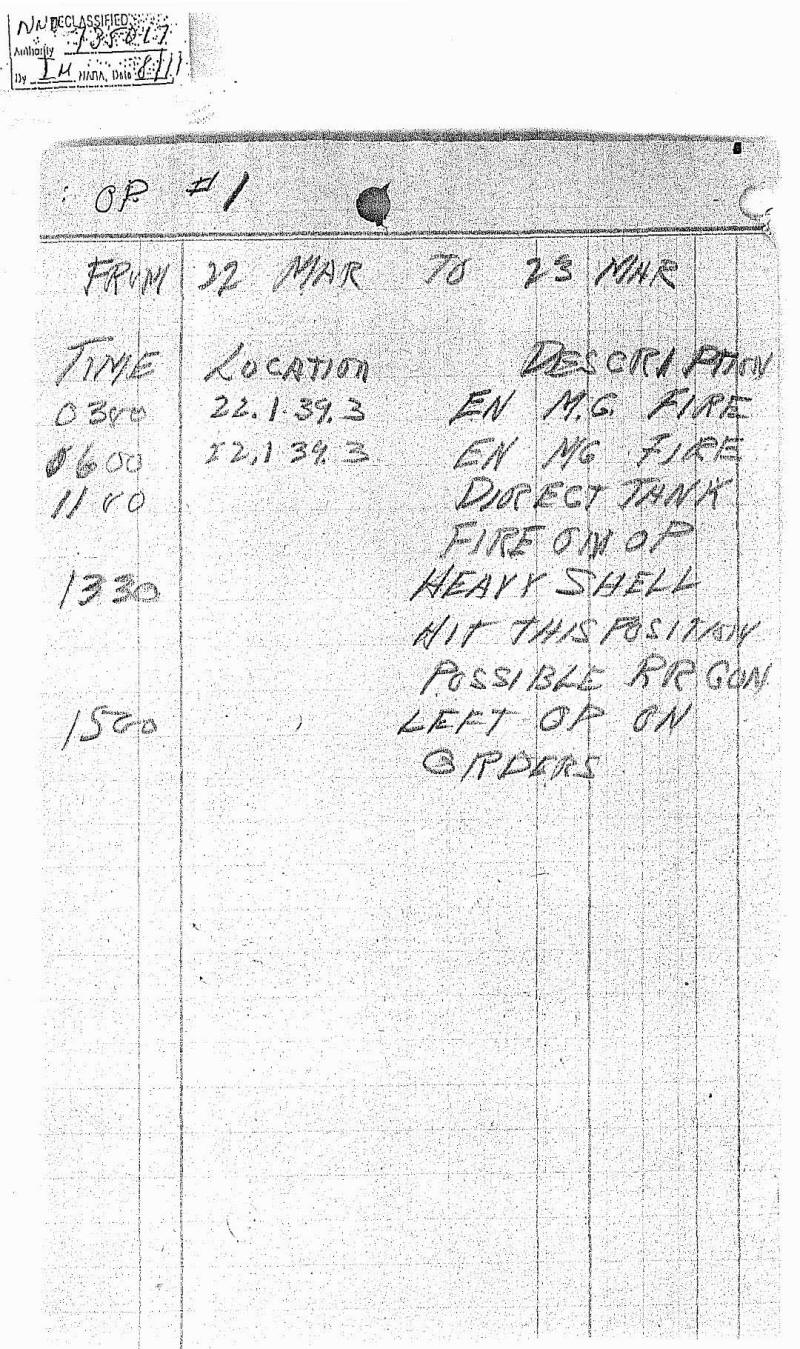 DECLASSIFIED
Authority NND 735017
By IM NARA, Date 8/11
OP #1
FROM 22 MAR TO 23 MAR
TIME LOCATION DESCRIPTION
0300 22.1-39.3 EN M.G. FIRE
0600 22.1-39.3 EN MG FIRE
1100 DIRECT TANK
FIRE ON OP
1330 HEAVY SHELL
HIT THIS POSITION
POSSIBLE RR GUN
1500 LEFT OP ON
ORDERS